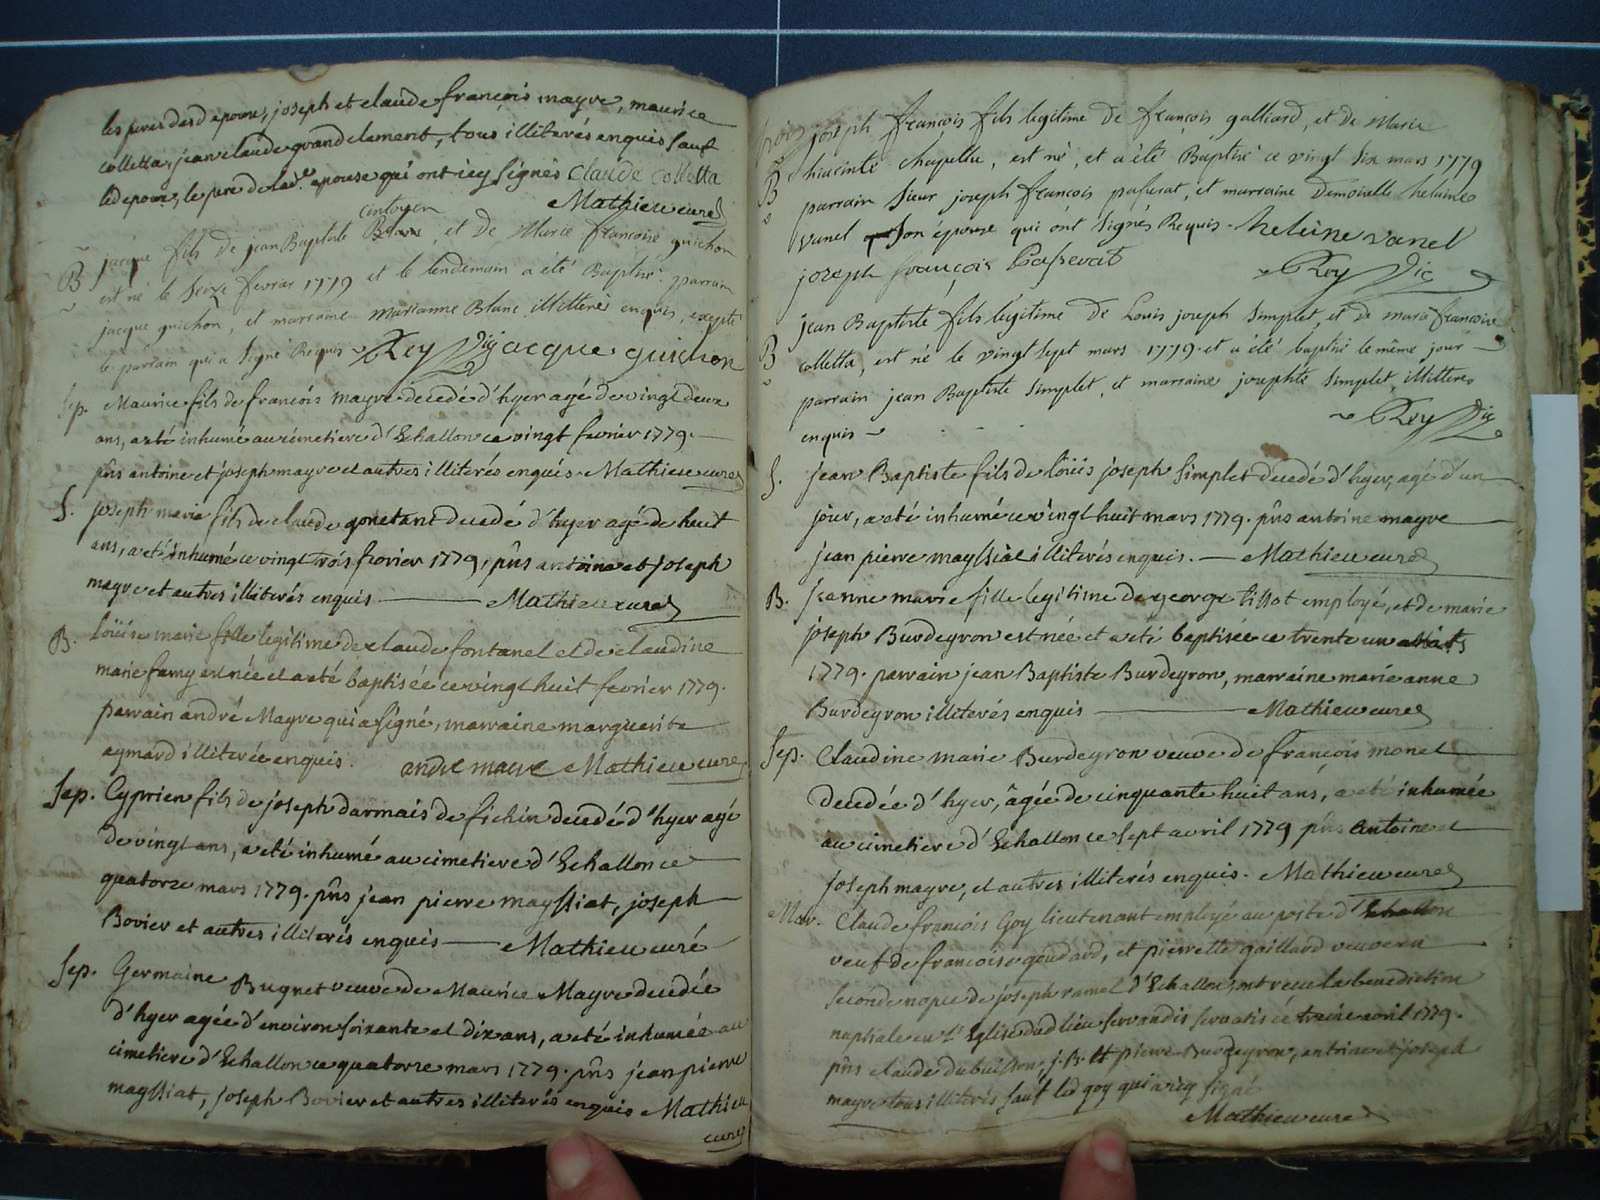 les peres desd epoux, joseph et claude françois mayre, maurice
colletta, jean claude grandclament, tous illiterés enquis sauf
led epoux, le pere de lad.e epouse qui ont icy signés Claude Colletta
Mathieu curé
citoyen
B jacque fils de jean Baptiste Blanc, et de Marie françoise guichon
est né le seize fevrier 1779 et le lendemain a été Baptisé. parrain
jacque guichon, et marraine marianne Blanc illitterés enquis, excepté
le parrain qui a signé Requis Rey Vic jacque guichon
Sep. Maurice fils de françois mayre decedé d'hyer agé de vingt deux
ans, a eté inhumé au cimetiere d'Echallon ce vingt fevrier 1779.
pñs antoine et joseph mayre et autres illiterés enquis. Mathieu curé
S. joseph marie fils de claude gonetant decedé d'hyer agé de huit
ans, a eté inhumé ce vingt trois fevrier 1779, pñs antoine et joseph
mayre et autres illiterés enquis Mathieu curé
B. Loüise marie fille legitime de claude fontanel et de claudine
marie famy est née et a eté baptisée ce vingt huit fevrier 1779.
parrain andré Mayre qui a signé, marraine marguerite
aymard illiterée enquis. andre mayre Mathieu curé
Sep. Cyprien fils de joseph darmais de fichin decedé d'hyer agé
de vingt ans, a eté inhumé au cimetiere d'Echallon ce
quatorze mars 1779. pñs jean pierre mayssiat, joseph
Bovier et autres illiterés enquis Mathieu curé
Sep. Germaine Bugnet veuve de Maurice Mayre decedée
d'hyer agée d'environ soixante et dix ans, a eté inhumée au
cimetiere d'Echallon ce quatorze mars 1779. pñs jean pierre
mayssiat, joseph Bovier et autres illiterés enquis Mathieu
curé
B joseph françois fils legitime de françois galliard, et de Marie
hiacinte chapellu, est né, et a été Baptisé ce vingt six mars 1779
parrain sieur joseph françois passerat, et marraine demoiselle heleine
vanel son épouse qui ont signés Requis. heleine vanel
joseph françois Passerat Rey Vic
B jean Baptiste fils legitime de Louis joseph Simplet, et de marie françoise
colletta, est né le vingt sept mars 1779. et a été baptisé le même jour
parrain jean Baptiste Simplet, et marraine josephte Simplet, illitteres
enquis Rey Vic
S. jean Baptiste fils de loüis joseph Simplet decedé d'hyer, agé d'un
jour, a eté inhumé ce vingt huit mars 1779. pñs antoine mayre
jean pierre mayssiat illiterés enquis. Mathieu curé
B. Jeanne marie fille legitime de george tissot employé, et de marie
joseph Burdeyron est née et a eté baptisée ce trente un mars
1779. parrain jean Baptiste Burdeyron, marraine marie anne
Burdeyron illiterés enquis Mathieu curé
Sep. Claudine marie Burdeyron veuve de françois monet
decedée d'hyer, âgée de cinquante huit ans, a eté inhumée
au cimetiere d'Echallon ce sept avril 1779 pñs Antoine et
joseph mayre, et autres illiterés enquis. Mathieu curé
Mar. Claude françois Goy lieutenant employé au poste d'Echallon
veuf de françoise geudard, et pierrette gaillard veuve en
seconde nopce de joseph ramel d'Echallon, ont receu la benediction
nuptiale en l'Eglise dud lieu servandis servatis ce treize avril 1779.
pñs claude dubuisson, j. B. et pierre Burdeyron, antoine et joseph
mayre tous illiterés sauf led goy qui a icy signé
Mathieu curé